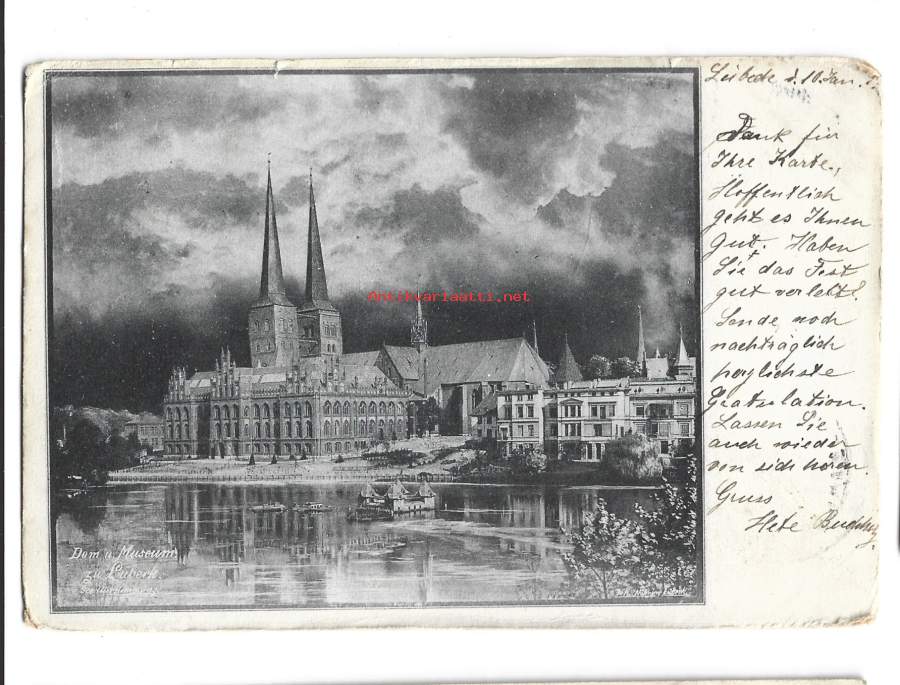 Lübeck d. 10. Jan.
Dank für
Ihre Karte,
Hoffentlich
geht es Ihnen
gut. Haben
Sie das Fest
gut verlebt?
Sende noch
nachträglich
herzlichste
Gratulation.
Lassen Sie
auch wieder
von sich hören.
Gruss
Hete
Antikvariaatti.net
Dom u. Museum
zu Lübeck.